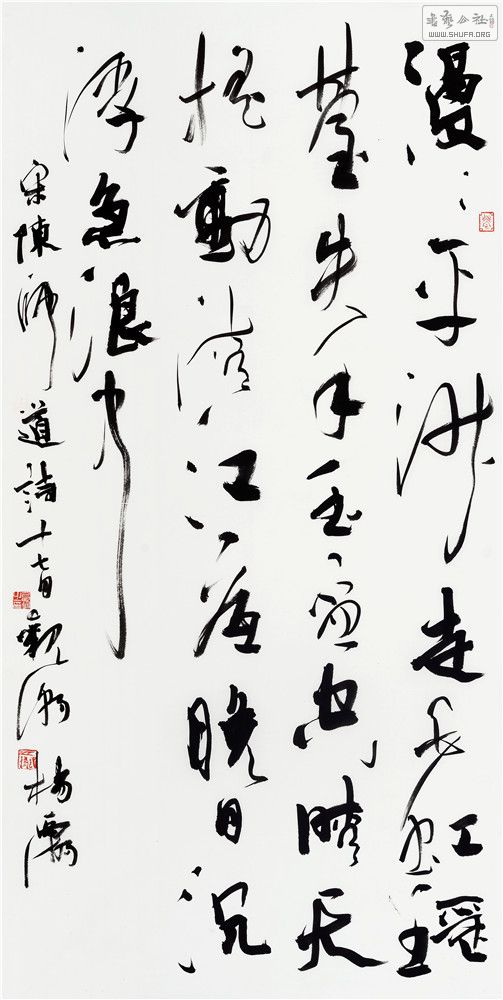 書藝公社
WWW.SHUFA.ORG
漫〻平沙走白虹瑶
臺失手玉盃空晴天
搖動清江底晚日沉
浮急浪中
宋陳師道詩十七日觀潮 楊